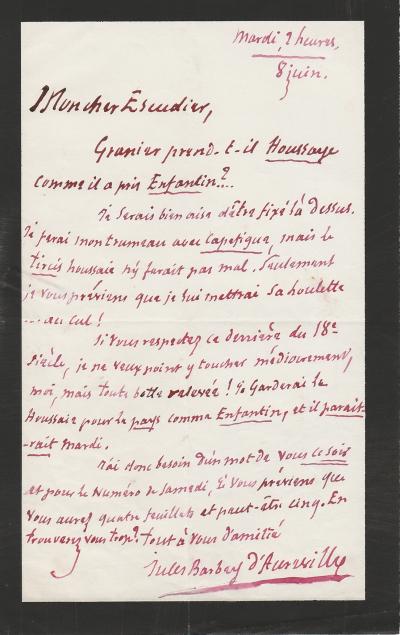 Mardi, 2 heures,
8 juin.
Mon cher Escudier,
Granier prend-t-il Houssaye
comme il a pris Enfantin?...
Je serais bien aise d'être fixé là dessus.
Je ferai mon trumeau avec Capefigue, mais le
tircis houssaie n'y ferait pas mal. Seulement
je vous préviens que je lui mettrai sa houlette
.... au cul!
Si vous respectez ce derrière du 18e
siècle, je ne veux point y toucher médiocrement,
moi, mais toute botte relevée! Je Garderai le
Houssaie pour le pays comme Enfantin, et il paraît-
-rait mardi.
J'ai donc besoin d'un mot de vous ce soir
et pour le Numéro de Samedi, Je vous préviens que
vous aurez quatre feuillets et peut-être cinq. En
trouverez vous trop? Tout à vous d'amitié
Jules Barbey d'Aurevilly